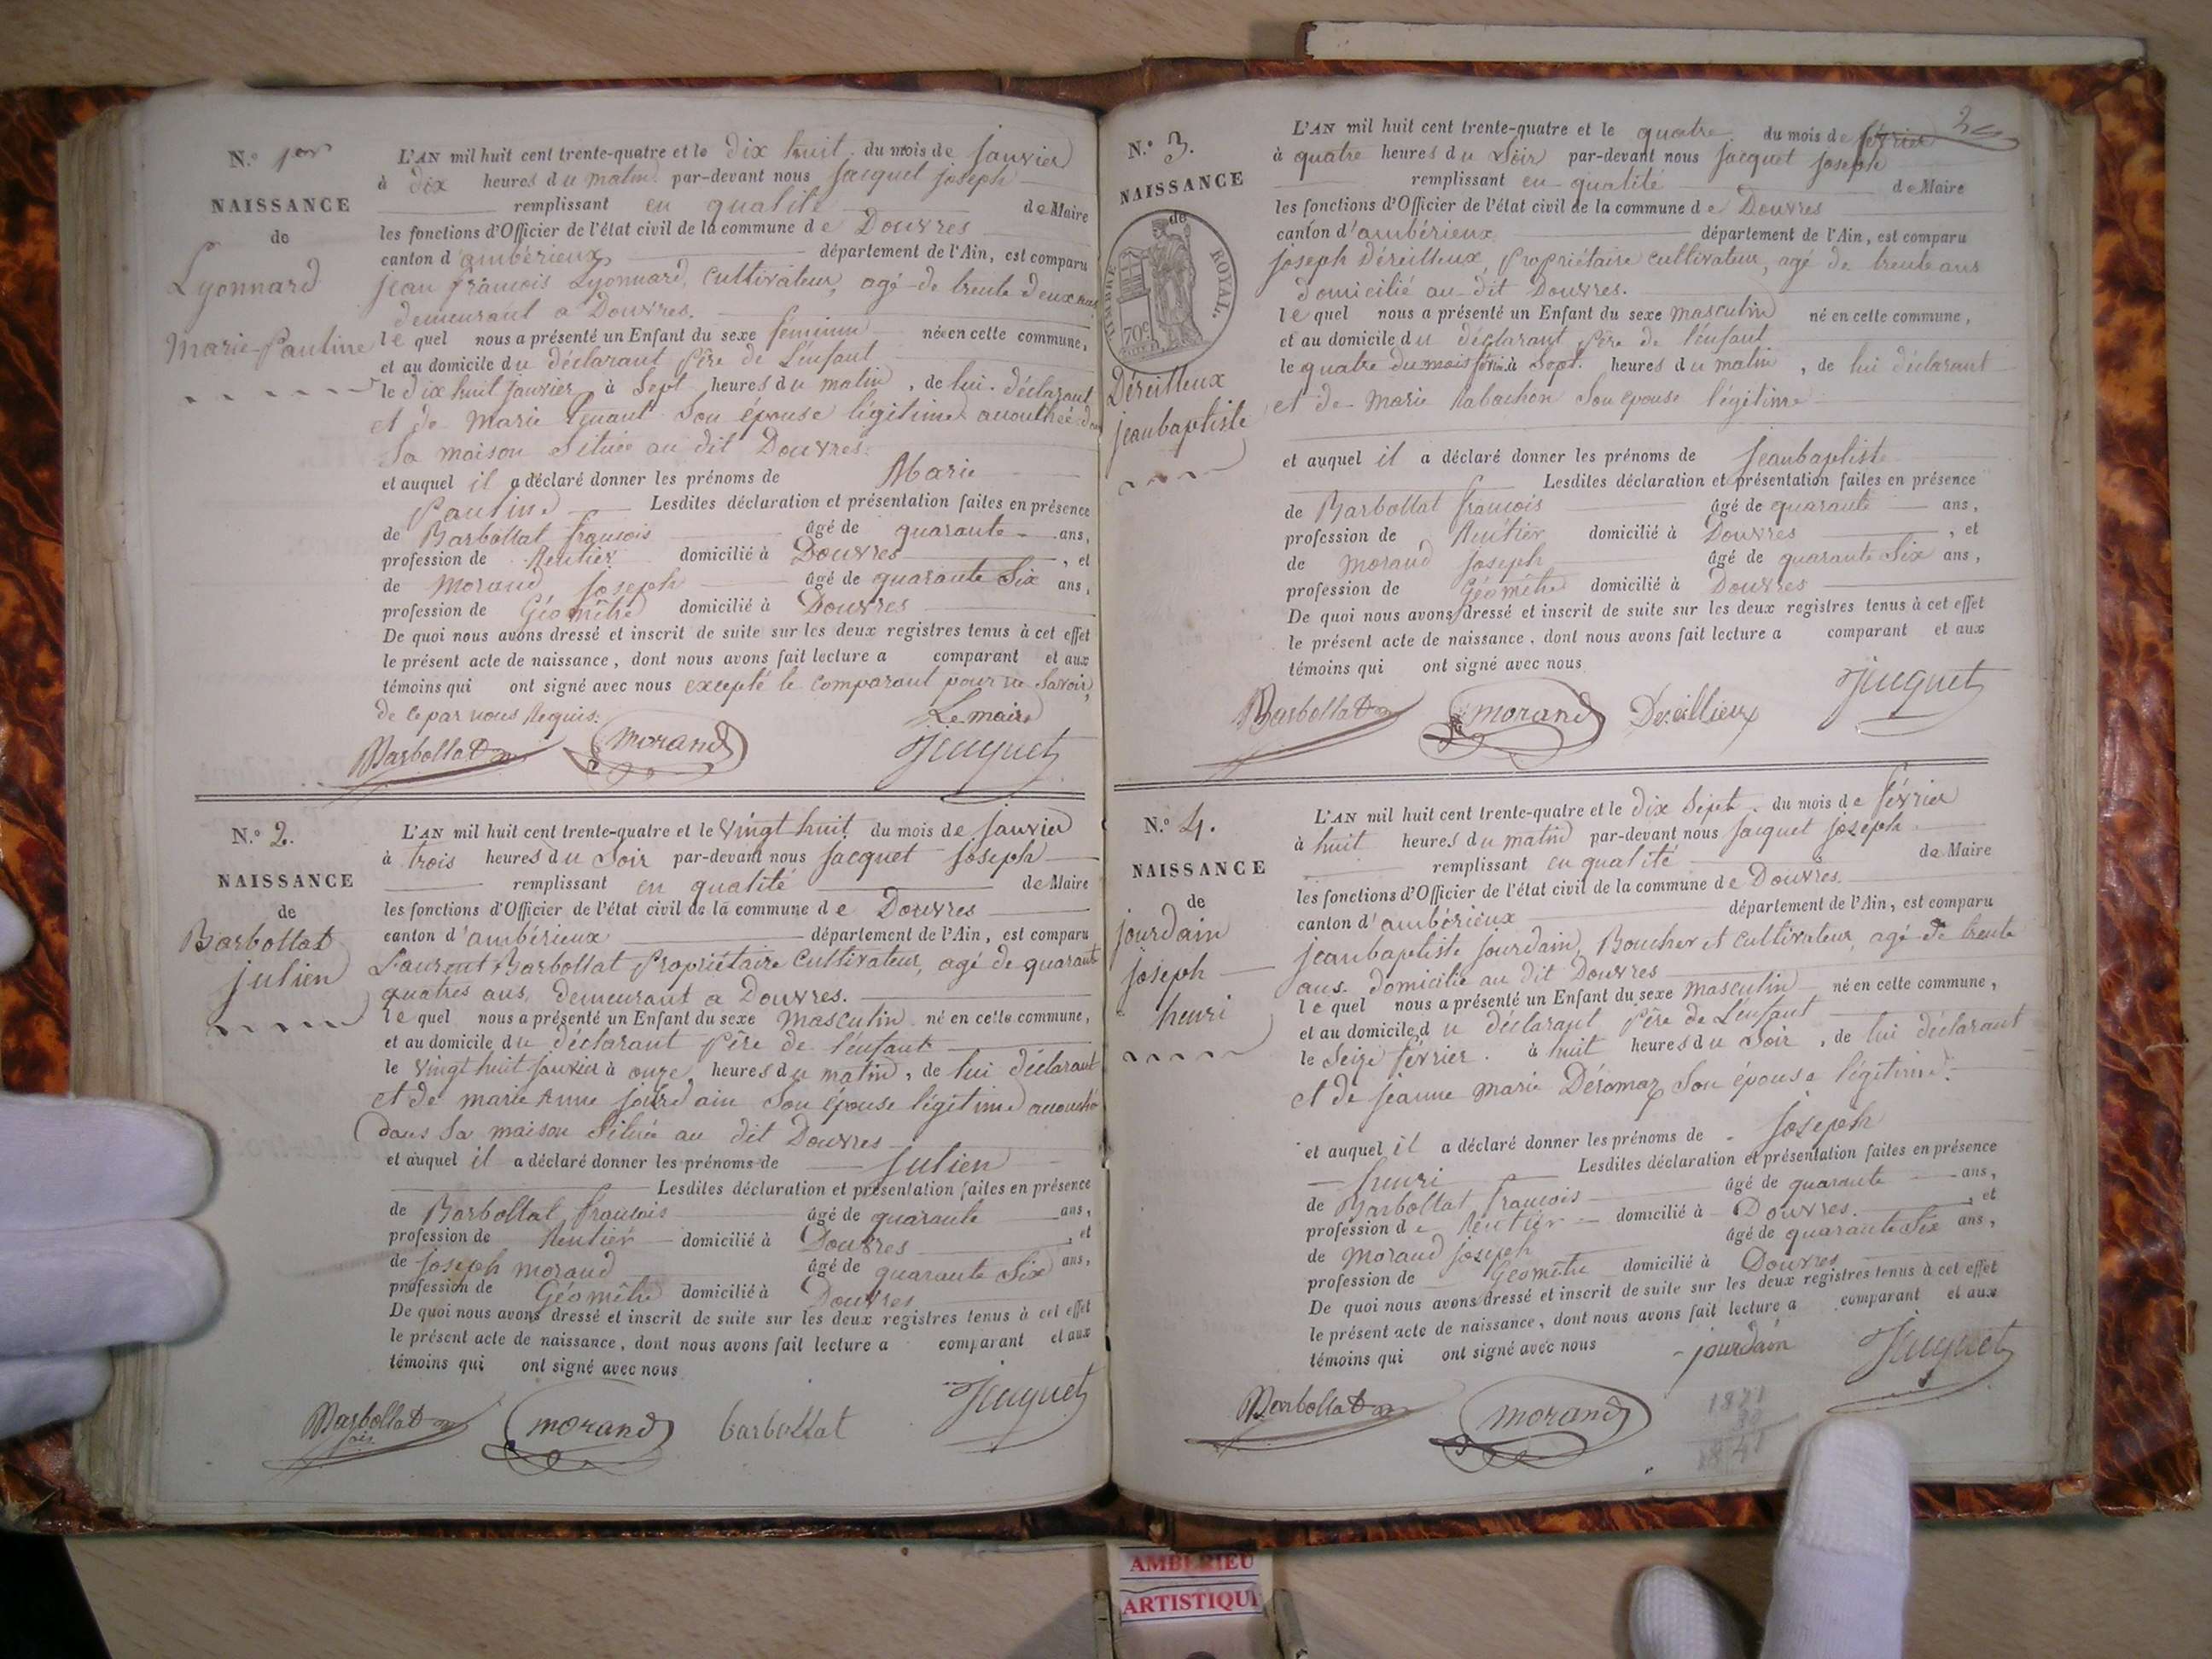 N.º 1er
NAISSANCE
de
Lyonnard
Marie-Pauline
L'AN mil huit cent trente-quatre et le dix huit du mois de janvier
à dix heures du matin par-devant nous jacquet joseph
remplissant en qualité de Maire
les fonctions d'Officier de l'état civil de la commune de Douvres
canton d'ambérieux département de l'Ain, est comparu
jean françois Lyonnard, cultivateur, agé de trente deux ans
demeurant a Douvres.
lequel nous a présenté un Enfant du sexe féminin née en cette commune,
et au domicile du déclarant père de l'enfant
le dix huit janvier à sept heures du matin, de lui déclarant
et de Marie son épouse légitime
sa maison située au dit Douvres.
et auquel il a déclaré donner les prénoms de Marie
Pauline Lesdites déclaration et présentation faites en présence
de Barbollat françois âgé de quarante ans,
profession de Rentier domicilié à Douvres, et
de Morand joseph âgé de quarante six ans,
profession de Géomêtre domicilié à Douvres
De quoi nous avons dressé et inscrit de suite sur les deux registres tenus à cet effet
le présent acte de naissance, dont nous avons fait lecture a comparant et aux
témoins qui ont signé avec nous excepté le comparant pour ne savoir,
de ce par nous requis.
Le maire
Barbollat morand Jacquet
N.º 2.
NAISSANCE
de
Barbollat
julien
L'AN mil huit cent trente-quatre et le vingt huit du mois de janvier
à trois heures du soir par-devant nous jacquet joseph
remplissant en qualité de Maire
les fonctions d'Officier de l'état civil de la commune de Douvres
canton d'ambérieux département de l'Ain, est comparu
Laurent Barbollat propriétaire cultivateur, agé de quarante
quatres ans, demeurant a Douvres.
lequel nous a présenté un Enfant du sexe masculin né en cette commune,
et au domicile du déclarant père de l'enfant
le vingt huit janvier à onze heures du matin, de lui déclarant
et de marie Anne jourdain son épouse légitime
dans sa maison située au dit Douvres
et auquel il a déclaré donner les prénoms de julien
Lesdites déclaration et présentation faites en présence
de Barbollat françois âgé de quarante ans,
profession de Rentier domicilié à Douvres, et
de joseph morand âgé de quarante six ans,
profession de Géomêtre domicilié à Douvres
De quoi nous avons dressé et inscrit de suite sur les deux registres tenus à cet effet
le présent acte de naissance, dont nous avons fait lecture a comparant et aux
témoins qui ont signé avec nous
Barbollat morand barbollat Jacquet
N.º 3.
NAISSANCE
de
TIMBRE ROYAL.
70c
Déreilleux
jeanbaptiste
L'AN mil huit cent trente-quatre et le quatre du mois de février
à quatre heures du soir par-devant nous jacquet joseph
remplissant en qualité de Maire
les fonctions d'Officier de l'état civil de la commune de Douvres
canton d'ambérieux département de l'Ain, est comparu
joseph Déreilleux, propriétaire cultivateur, agé de trente ans
domicilié au dit Douvres.
lequel nous a présenté un Enfant du sexe masculin né en cette commune,
et au domicile du déclarant père de l'enfant
le quatre du mois à sept heures du matin, de lui déclarant
et de Marie Rabachon son épouse légitime
et auquel il a déclaré donner les prénoms de jeanbaptiste
Lesdites déclaration et présentation faites en présence
de Barbollat françois âgé de quarante ans,
profession de Rentier domicilié à Douvres, et
de Morand joseph âgé de quarante six ans,
profession de Géomêtre domicilié à Douvres
De quoi nous avons dressé et inscrit de suite sur les deux registres tenus à cet effet
le présent acte de naissance, dont nous avons fait lecture a comparant et aux
témoins qui ont signé avec nous
Barbollat morand Déreillieux Jacquet
N.º 4.
NAISSANCE
de
jourdain
joseph
henri
L'AN mil huit cent trente-quatre et le dix sept du mois de février
à huit heures du matin par-devant nous jacquet joseph
remplissant en qualité de Maire
les fonctions d'Officier de l'état civil de la commune de Douvres.
canton d'ambérieux département de l'Ain, est comparu
jeanbaptiste jourdain, Boucher et cultivateur, agé de trente
ans domicilié au dit Douvres
lequel nous a présenté un Enfant du sexe masculin né en cette commune,
et au domicile du déclarant père de l'enfant
le seize février à huit heures du soir, de lui déclarant
et de jeanne marie Déromaz son épouse légitime.
et auquel il a déclaré donner les prénoms de joseph
henri Lesdites déclaration et présentation faites en présence
de Barbollat françois âgé de quarante ans,
profession de Rentier domicilié à Douvres, et
de morand joseph âgé de quarante six ans,
profession de Géomêtre domicilié à Douvres
De quoi nous avons dressé et inscrit de suite sur les deux registres tenus à cet effet
le présent acte de naissance, dont nous avons fait lecture a comparant et aux
témoins qui ont signé avec nous jourdain Jacquet
Barbollat morand
AMBERIEU
ARTISTIQUE